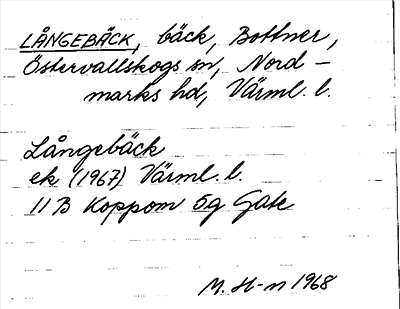 LÅNGEBÄCK, bäck, Bottner,
Östervallskogs sn, Nord-
marks hd, Värml. l.
Långebäck
ek (1967) Värml. l.
11B Koppom 5g Gate
M. H-n 1968